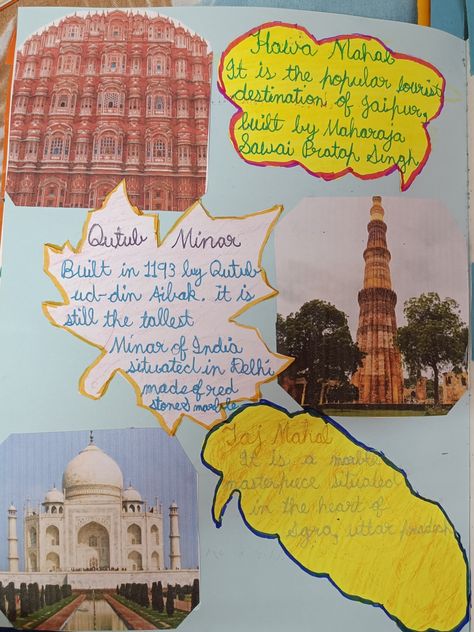 Hawa Mahal
It is the popular tourist
destination of Jaipur,
built by Maharaja
Sawai Pratap Singh
Qutub Minar
Built in 1193 by Qutub
-ud-din Aibak. it is
still the tallest
Minar of India
situated in Delhi
made of red
stone & marble
Taj Mahal
It is a marble
masterpiece situated
in the heart of
Agra, uttar pradesh